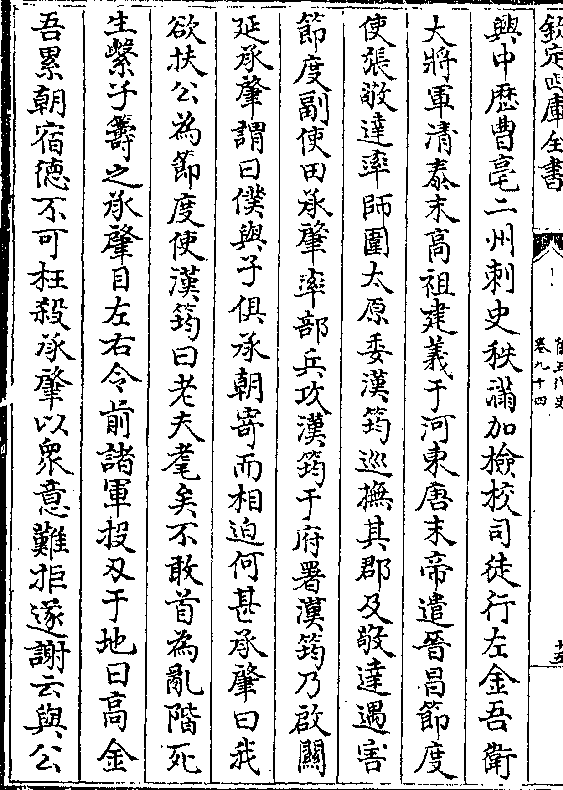 欽定四庫全書
舊五代史
卷九十四
十五
興中歴曹亳二州刺史秩滿加檢校司徒行左金吾衛
大將軍清泰末高祖建義于河東唐末帝遣晉昌節度
使張敬達率師圍太原委漢筠巡撫其郡及敬達遇害
節度副使田承肇率部兵攻漢筠于府署漢筠乃啟關
延承肇謂曰僕與子俱承朝寄而相迫何甚承肇曰我
欲扶公為節度使漢筠曰老夫耄矣不敢首為亂階死
生繫子籌之承肇目左右令前諸軍投刄于地曰高金
吾累朝宿德不可枉殺承肇以衆意難拒遂謝云與公